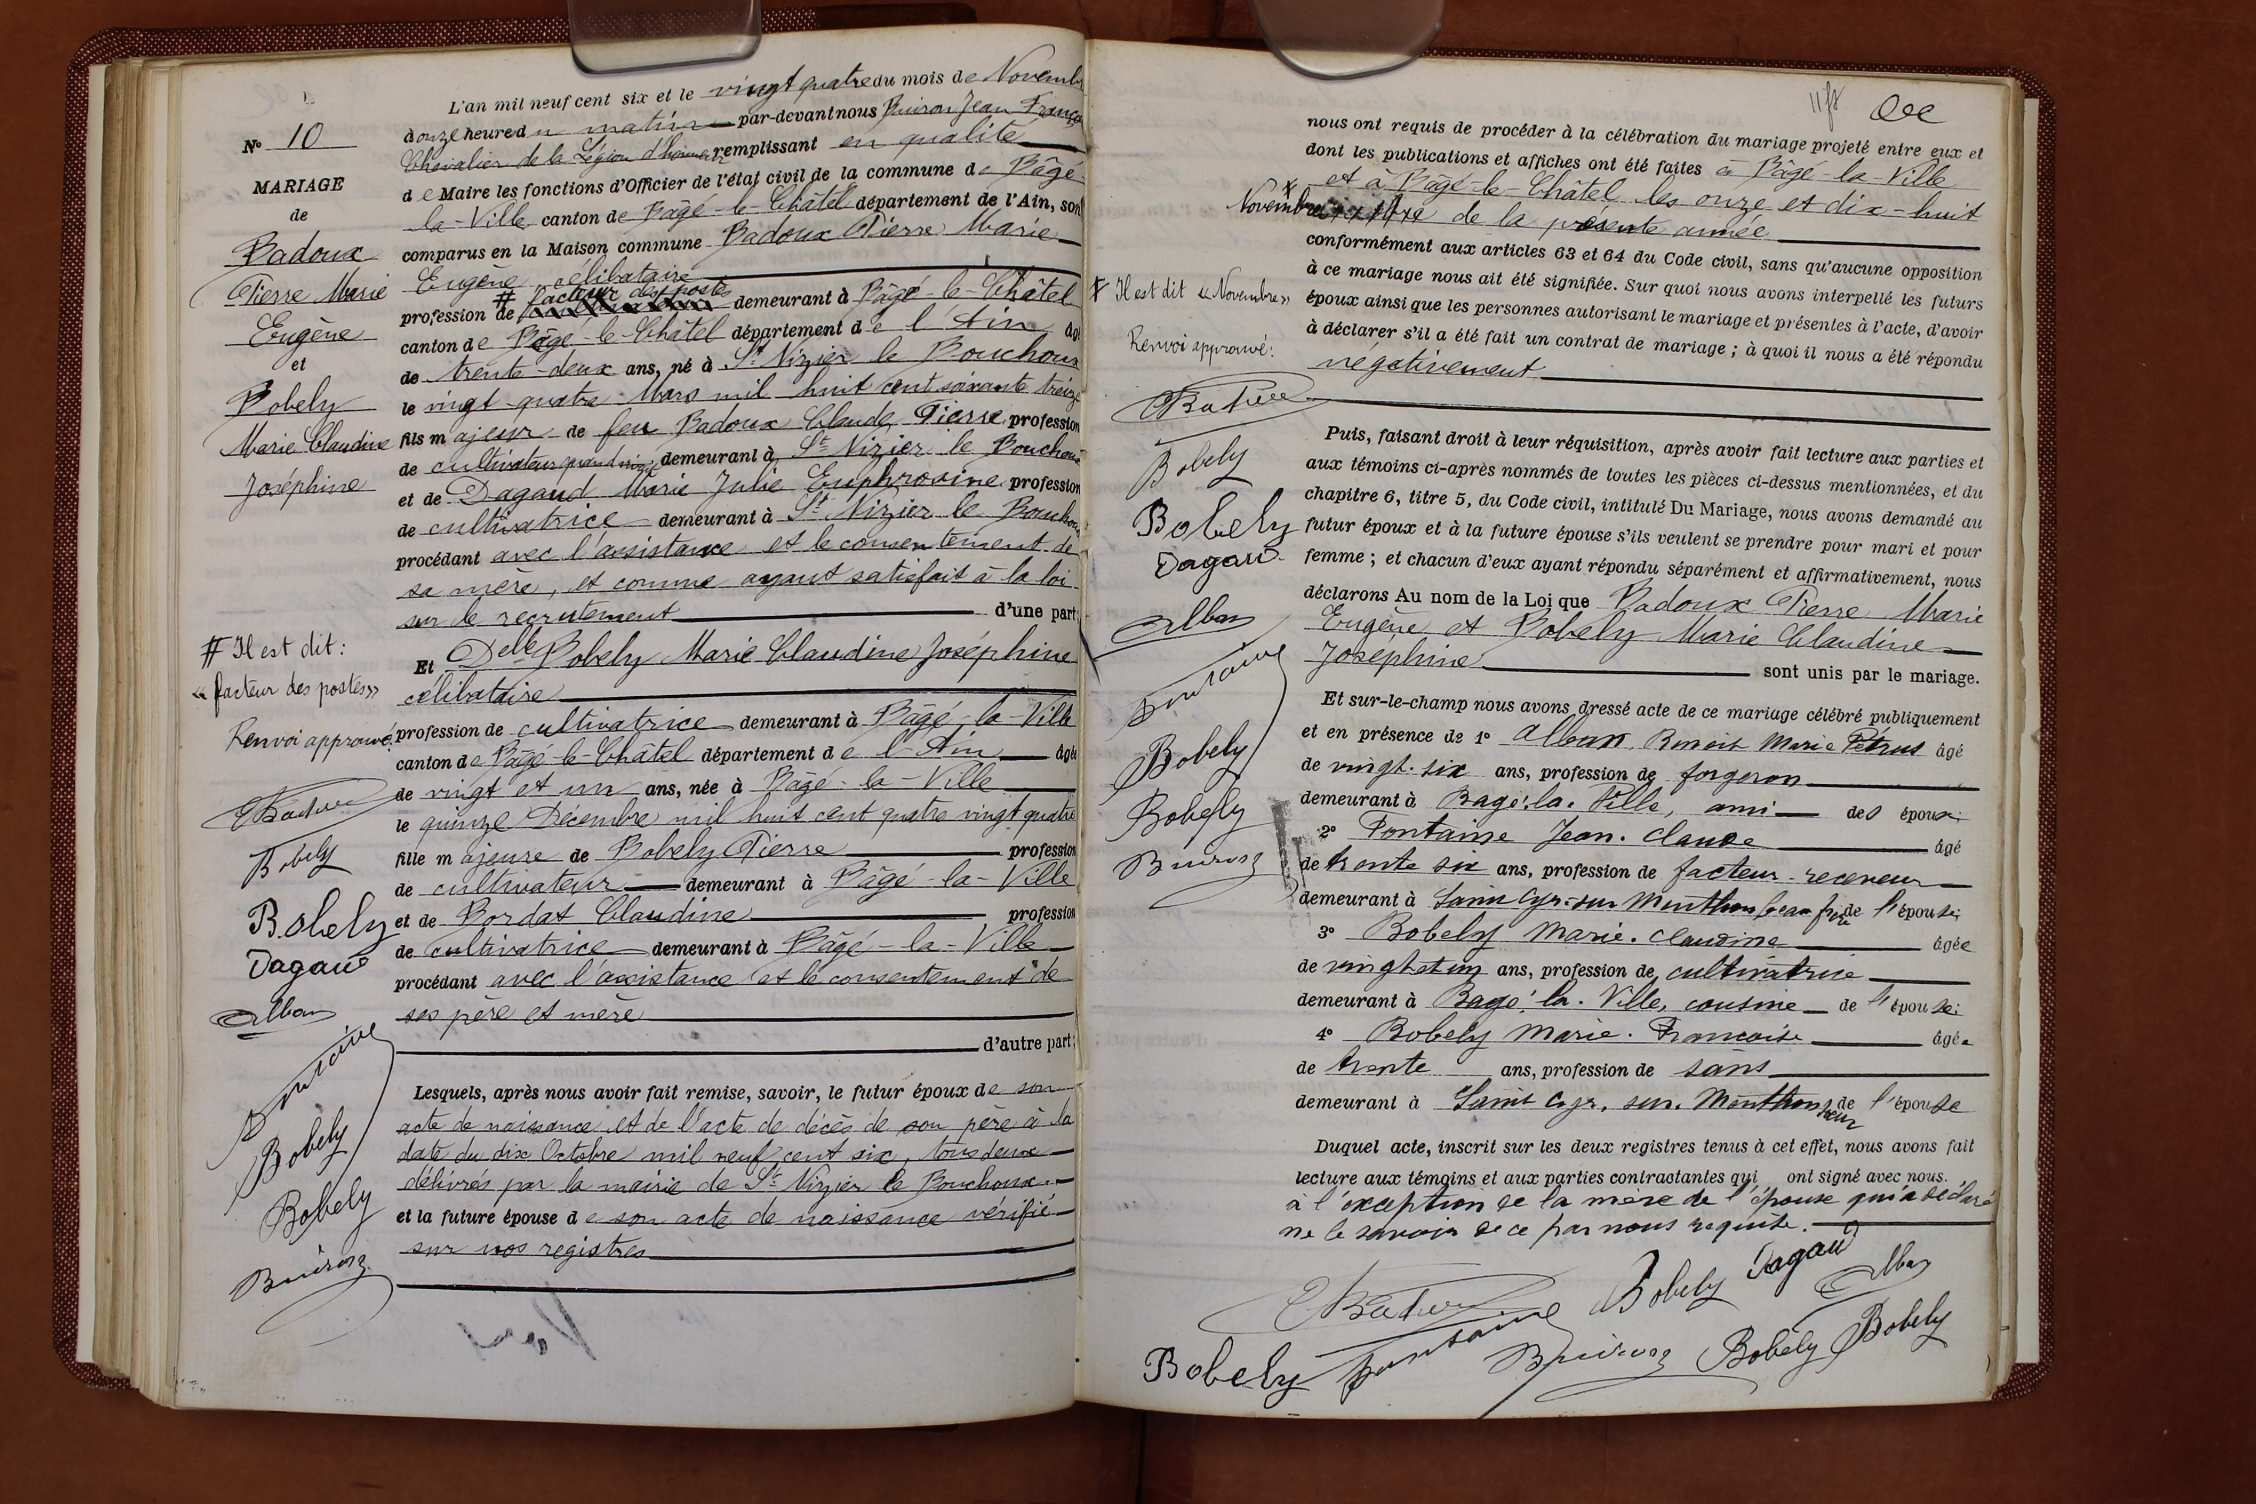 L'an mil neuf cent six et le vingt quatre du mois de Novembre
N° 10
à onze heure du matin par-devant nous Buiron Jean François
Chevalier de la Légion d'honneur remplissant en qualité
MARIAGE
de Maire les fonctions d'Officier de l'état civil de la commune de Bâgé-
de
la-Ville canton de Bâgé-le-Châtel département de l'Ain, sont
Badoux
Pierre Marie
Eugène
et
Bobely
Marie Claudine
Joséphine
comparus en la Maison commune Badoux Pierre Marie
Eugène célibataire
profession de # facteur des postes demeurant à Bâgé-le-Châtel
canton de Bâgé-le-Châtel département de l'Ain âgé
de trente-deux ans, né à St Nizier le Bouchoux
le vingt-quatre Mars mil huit cent soixante treize
fils majeur de feu Badoux Claude Pierre profession
de cultivateur quand vivait demeurant à St Nizier le Bouchoux
et de Dagaud Marie Julie Euphrosine profession
de cultivatrice demeurant à St Nizier le Bouchoux
procédant avec l'assistance et le consentement de
sa mère, et comme ayant satisfait à la loi
sur le recrutement d'une part;
Et Delle Bobely Marie Claudine Joséphine
célibataire
profession de cultivatrice demeurant à Bâgé-la-Ville
canton de Bâgé-le-Châtel département de l'Ain âgée
de vingt et un ans, née à Bâgé-la-Ville
le quinze Décembre mil huit cent quatre vingt quatre
fille majeure de Bobely Pierre profession
de cultivateur demeurant à Bâgé-la-Ville
et de Bordat Claudine profession
de cultivatrice demeurant à Bâgé-la-Ville
procédant avec l'assistance et le consentement de
ses père et mère
d'autre part;
Lesquels, après nous avoir fait remise, savoir, le futur époux de son
acte de naissance et de l'acte de décès de son père à la
date du dix Octobre mil neuf cent six, tous deux
délivrés par la mairie de St Nizier le Bouchoux
et la future épouse de son acte de naissance vérifié
sur nos registres
# Il est dit:
« facteur des postes »
Renvoi approuvé:
EBadoux
Bobely
Bobely
Dagaud
Alban
Fontaine
Bobely
Bobely
Buiron
nous ont requis de procéder à la célébration du mariage projeté entre eux et
dont les publications et affiches ont été faites à Bâgé-la-Ville
et à Bâgé-le-Châtel les onze et dix-huit
Novembre de la présente année
conformément aux articles 63 et 64 du Code civil, sans qu'aucune opposition
à ce mariage nous ait été signifiée. Sur quoi nous avons interpellé les futurs
époux ainsi que les personnes autorisant le mariage et présentes à l'acte, d'avoir
à déclarer s'il a été fait un contrat de mariage ; à quoi il nous a été répondu
négativement
# Il est dit « Novembre »
Renvoi approuvé:
EBadoux
Bobely
Bobely
Dagaud
Alban
Fontaine
Bobely
Bobely
Buiron
Puis, faisant droit à leur réquisition, après avoir fait lecture aux parties et
aux témoins ci-après nommés de toutes les pièces ci-dessus mentionnées, et du
chapitre 6, titre 5, du Code civil, intitulé Du Mariage, nous avons demandé au
futur époux et à la future épouse s'ils veulent se prendre pour mari et pour
femme ; et chacun d'eux ayant répondu séparément et affirmativement, nous
déclarons Au nom de la Loi que Badoux Pierre Marie
Eugène et Bobely Marie Claudine
Joséphine sont unis par le mariage.
Et sur-le-champ nous avons dressé acte de ce mariage célébré publiquement
et en présence de 1° Alban Benoit Marie Pétrus âgé
de vingt-six ans, profession de forgeron
demeurant à Bagé-la-Ville, ami des époux;
2° Fontaine Jean-Claude âgé
de trente six ans, profession de facteur-receveur
demeurant à Saint Cyr-sur Menthon beau frère de l'épouse;
3° Bobely Marie-Claudine âgée
de vingt et un ans, profession de cultivatrice
demeurant à Bagé-la-Ville, cousine de l'épouse;
4° Bobely Marie-Françoise âgée
de trente ans, profession de sans
demeurant à Saint Cyr-sur-Menthon sœur de l'épouse
Duquel acte, inscrit sur les deux registres tenus à cet effet, nous avons fait
lecture aux témoins et aux parties contractantes qui ont signé avec nous.
à l'exception de la mère de l'épouse qui a déclaré
ne le savoir de ce par nous requise.
EBadoux
Bobely
Dagaud
Alban
Bobely
Fontaine
Buiron
Bobely
Bobely